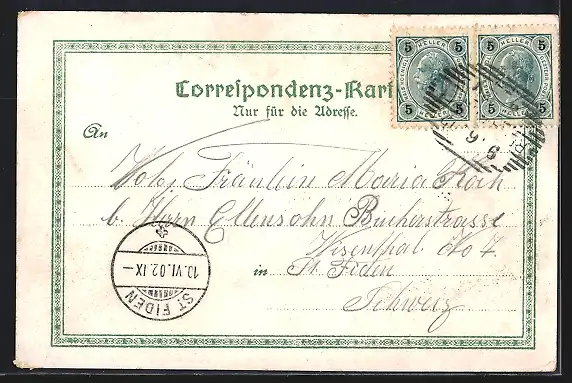 5 HELLER 5
5 HELLER 5
5 5
5 5
Correspondenz-Kart
Nur für die Adresse.
An
Wohl. Fräulein Maria Koch
b. Herrn Ellensohn Bucherstrasse
Wisenthal No 7.
in St. Fiden
Schweiz
10.VI.02.IX–
ST FIDEN
9 6